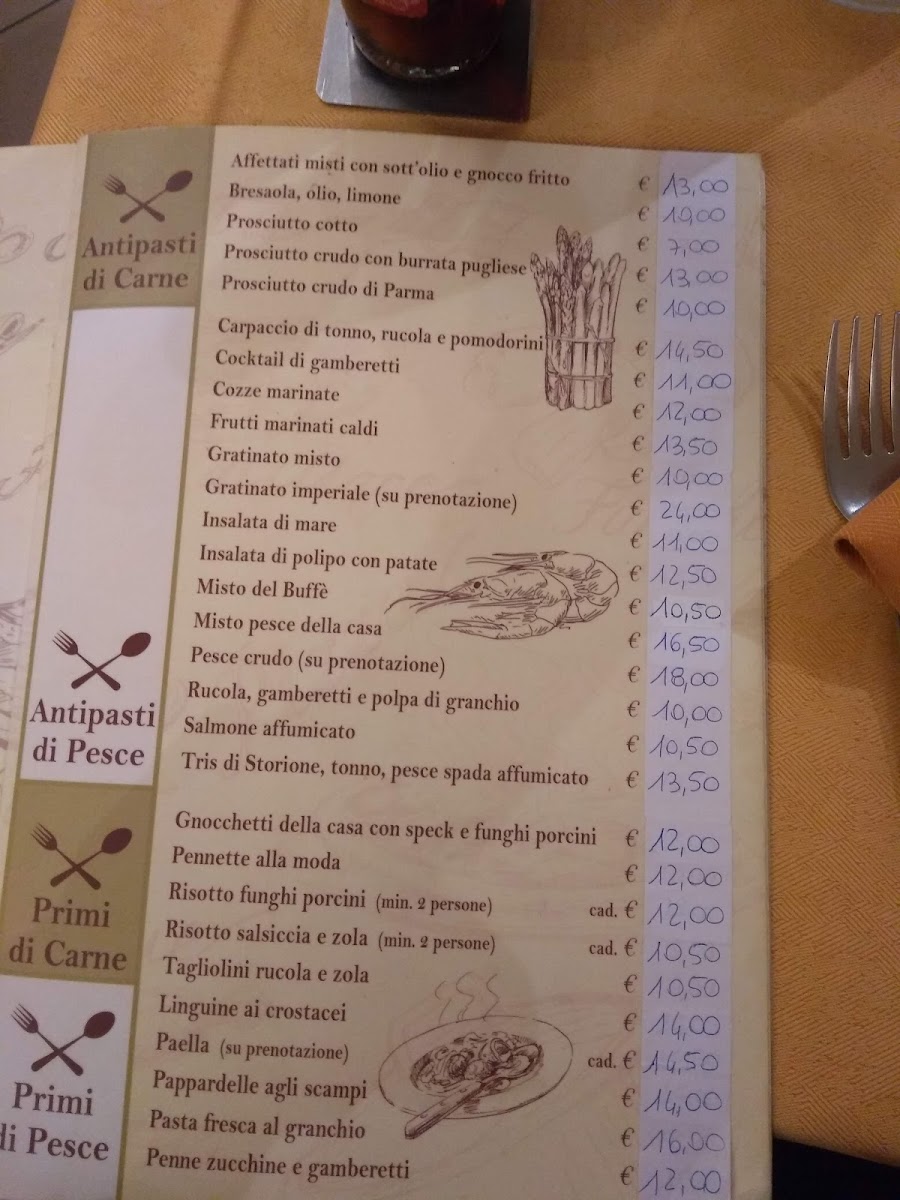 Antipasti
di Carne
Affettati misti con sott'olio e gnocco fritto € 13,00
Bresaola, olio, limone € 10,00
Prosciutto cotto € 7,00
Prosciutto crudo con burrata pugliese € 13,00
Prosciutto crudo di Parma € 10,00
Antipasti
di Pesce
Carpaccio di tonno, rucola e pomodorini € 14,50
Cocktail di gamberetti € 11,00
Cozze marinate € 12,00
Frutti marinati caldi € 13,50
Gratinato misto € 10,00
Gratinato imperiale (su prenotazione) € 24,00
Insalata di mare € 11,00
Insalata di polipo con patate € 12,50
Misto del Buffè € 10,50
Misto pesce della casa € 16,50
Pesce crudo (su prenotazione) € 18,00
Rucola, gamberetti e polpa di granchio € 10,00
Salmone affumicato € 10,50
Tris di Storione, tonno, pesce spada affumicato € 13,50
Primi
di Carne
Gnocchetti della casa con speck e funghi porcini € 12,00
Pennette alla moda € 12,00
Risotto funghi porcini (min. 2 persone) cad. € 12,00
Risotto salsiccia e zola (min. 2 persone) cad. € 10,50
Tagliolini rucola e zola € 10,50
Primi
di Pesce
Linguine ai crostacei € 14,00
Paella (su prenotazione) cad. € 14,50
Pappardelle agli scampi € 14,00
Pasta fresca al granchio € 16,00
Penne zucchine e gamberetti € 12,00